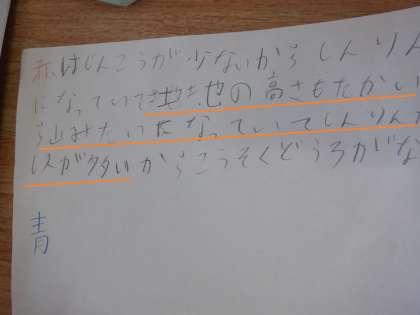 赤はじんこうが少ないからしんりん
になっていて土地の高さもたかい
ら山みたいになっていてしんりんが
が多いからこうそくどうろがな
青